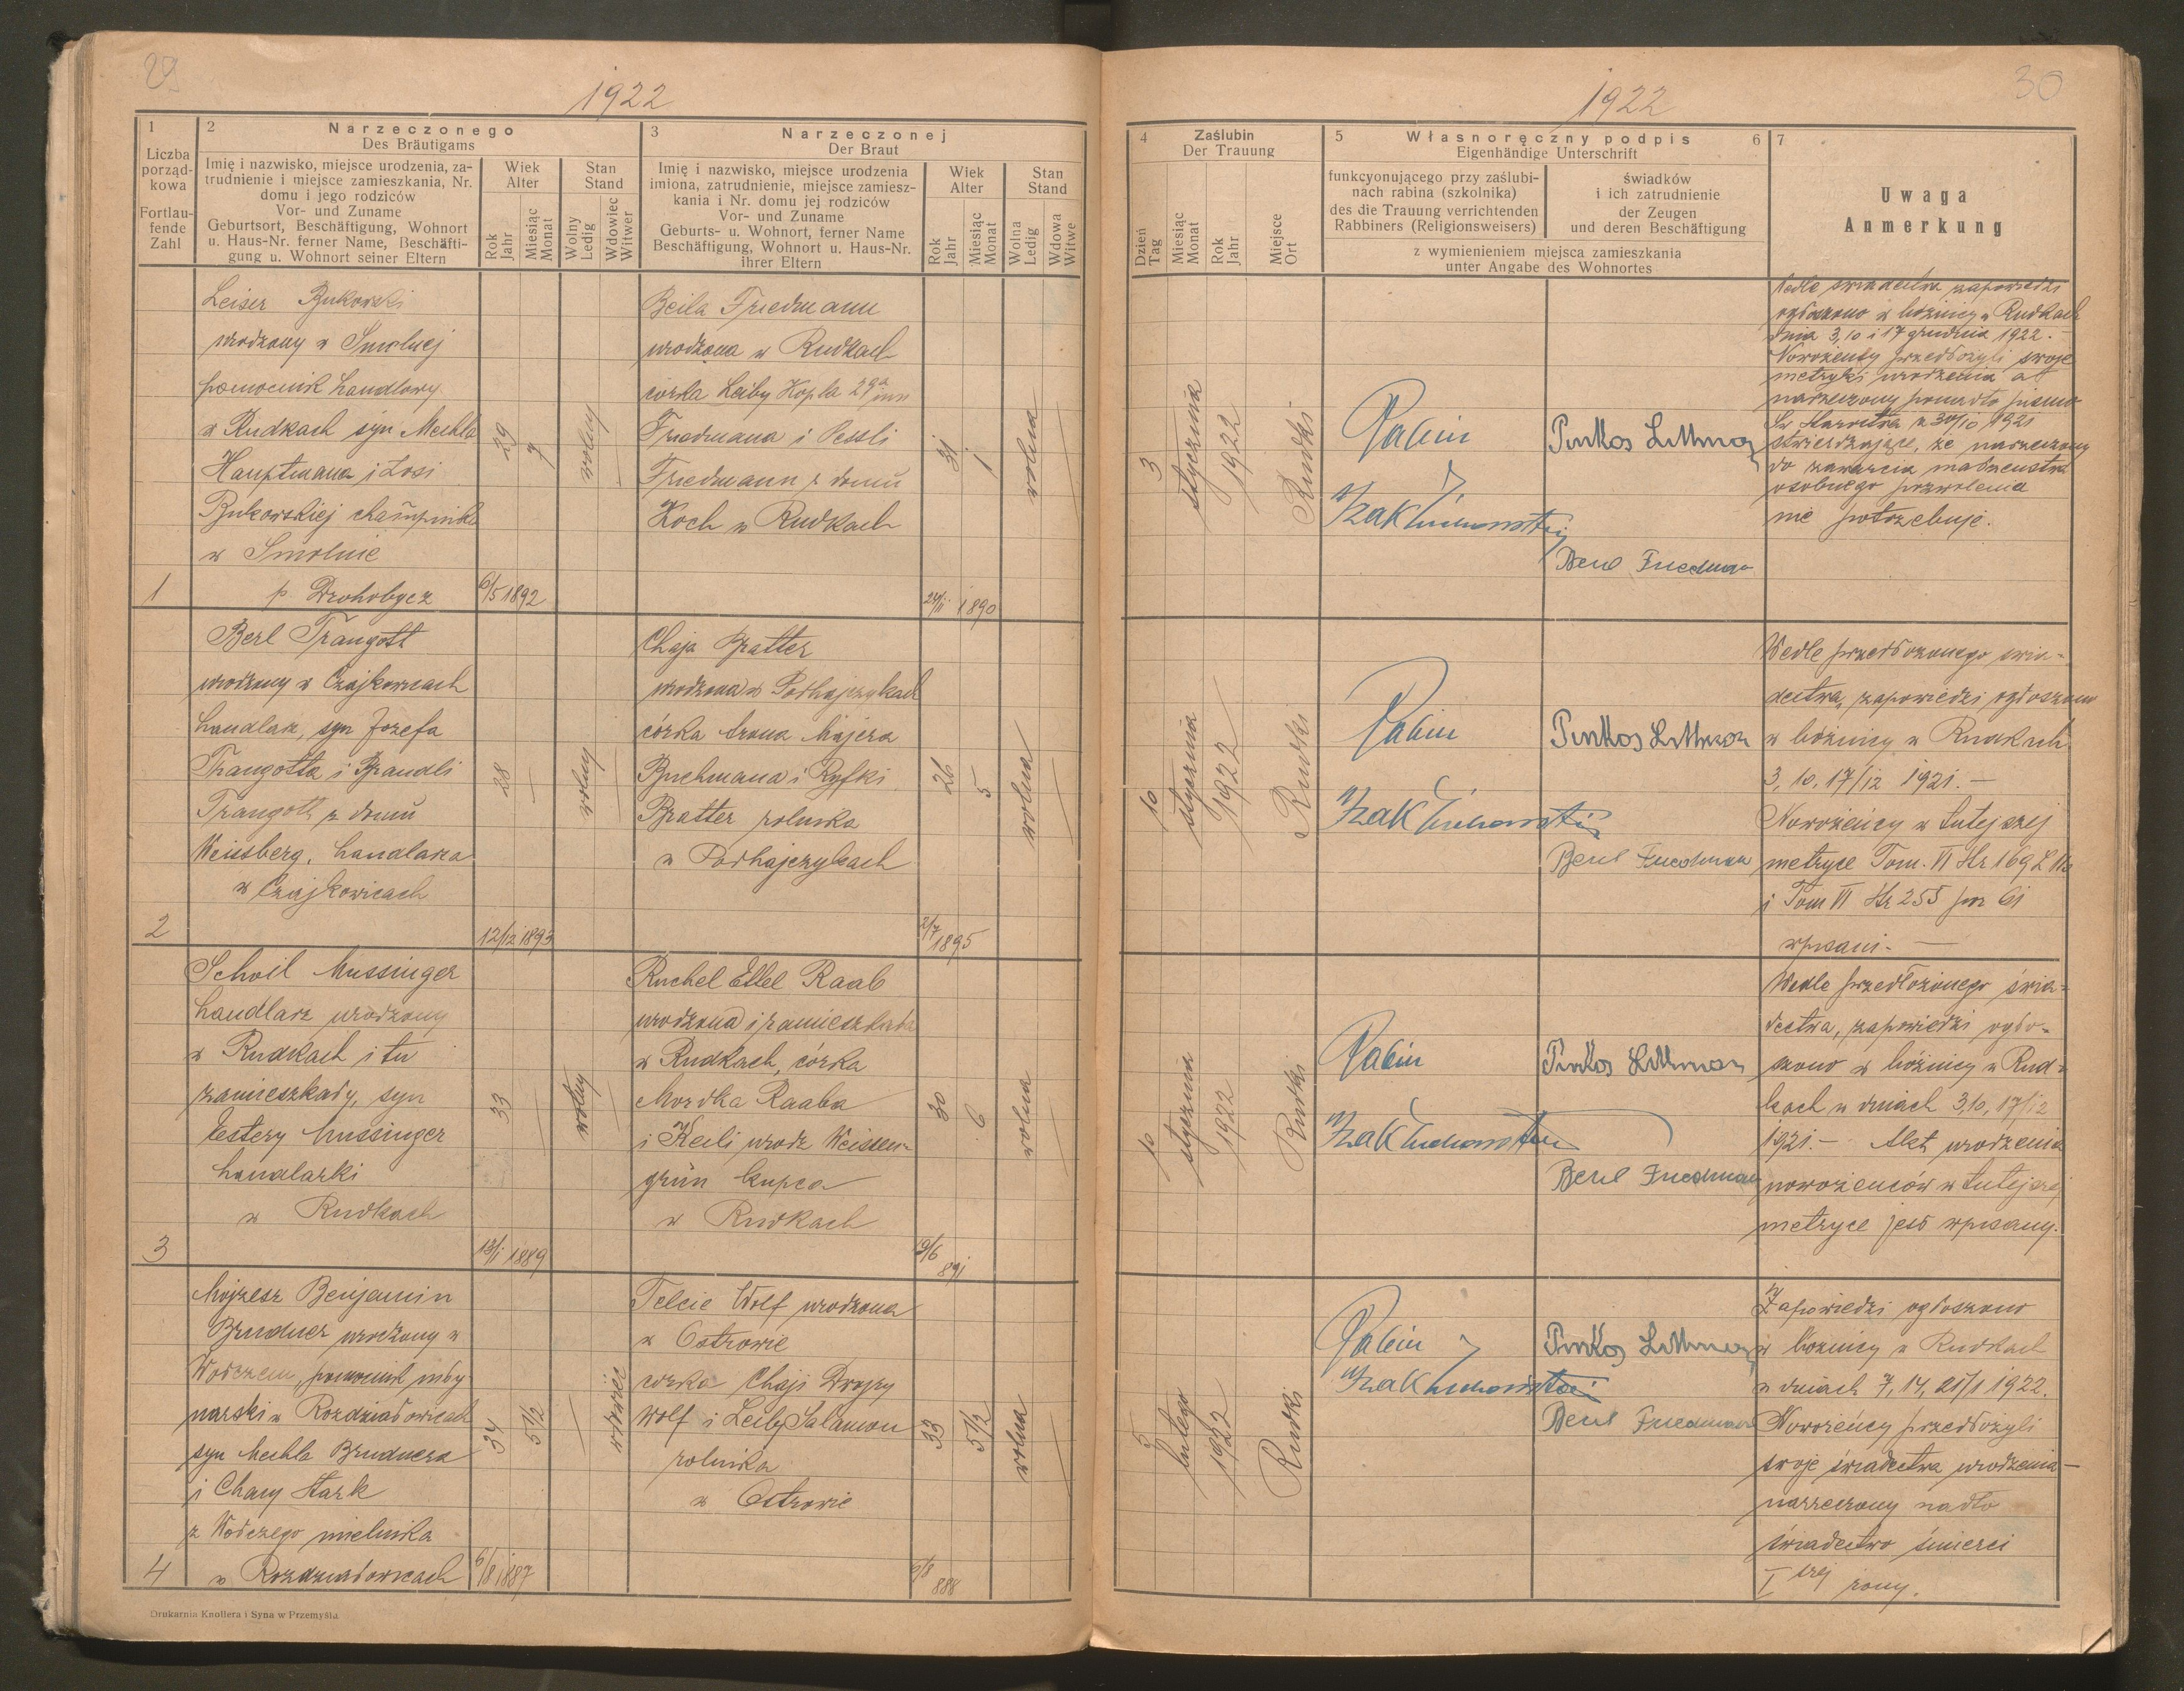 29
1922
1
Liczba
porząd-
kowa
Fortlau-
fende
Zahl
2
Narzeczonego
Des Bräutigams
Imię i nazwisko, miejsce urodzenia, za-
trudnienie i miejsce zamieszkania, Nr.
domu i jego rodziców
Vor- und Zuname
Geburtsort, Beschäftigung, Wohnort
u. Haus-Nr. ferner Name, Beschäfti-
gung u. Wohnort seiner Eltern
Wiek
Alter
Rok
Jahr
Miesiąc
Monat
Stan
Stand
Wolny
Ledig
Wdowiec
Witwer
3
Narzeczonej
Der Braut
Imię i nazwisko, miejsce urodzenia
imiona, zatrudnienie, miejsce zamiesz-
kania i Nr. domu jej rodziców
Vor- und Zuname
Geburts- u. Wohnort, ferner Name
Beschäftigung, Wohnort u. Haus-Nr.
ihrer Eltern
Wiek
Alter
Rok
Jahr
Miesiąc
Monat
Stan
Stand
Wolna
Ledig
Wdowa
Witwe
Leiser Bukowski
urodzony w Smolnej
pomocnik handlowy
w Rudkach syn Mechla
Hauptmana i Losi
Bukowskiej
w Smolnie
p. Drohobycz
1
29
7
wolny
6/5 1892
Beila Friedmann
urodzona w Rudkach
córka Leiby Kopla
Friedmana i Pessli
Friedmann z domu
Koch w Rudkach
31
1
wolna
24/11 1890
Berl Traugott
urodzony w Czajkowicach
handlarz, syn Józefa
Traugotta i Braudli
Traugott z domu
Weissberg, handlarza
w Czajkowicach
2
28
wolny
12/12 1893
Chaja Bratter
urodzona w Podhajczykach
córka Arona Majera
Buchmana i Ryfki
Bratter rolnika
w Podhajczykach
26
5
wolna
2/7 1895
Schoil Mussinger
handlarz urodzony
w Rudkach i tu
zamieszkały, syn
Estery Mussinger
handlarki
w Rudkach
3
33
wolny
13/1 1889
Ruchel Ettel Raab
urodzona i zamieszkała
w Rudkach, córka
Mordka Raaba
i Keili urodz. Weissen-
grün kupca
w Rudkach
30
6
wolna
9/6 891
Mojzesz Benjamin
Brudner urodzony w
pomocnik mły
narski w Rozdziałowicach
syn Mechla Brudnera
i Chany Stark
mielnika
w Rozdziałowicach
4
34
5 1/2
wdowiec
6/8 1887
Telcie Wolf urodzona
w Ostrowie
córka Chaji Drojzy
Wolf i Leiby Salamon
rolnika
w Ostrowie
33
5 1/2
wolna
9/8 888
Drukarnia Knollera i Syna w Przemyślu
30
1922
4
Zaślubin
Der Trauung
Dzień
Tag
Miesiąc
Monat
Rok
Jahr
Miejsce
Ort
5
Własnoręczny podpis
Eigenhändige Unterschrift
6
funkcyonującego przy zaślubi-
nach rabina (szkolnika)
des die Trauung verrichtenden
Rabbiners (Religionsweisers)
świadków
i ich zatrudnienie
der Zeugen
und deren Beschäftigung
z wymienieniem miejsca zamieszkania
unter Angabe des Wohnortes
7
Uwaga
Anmerkung
3
stycznia
1922
Rudki
Rabin
Pinkas Littman
Berl Friedman
Wedle świadectwa zapowiedzi
ogłoszono w bóżnicy w Rudkach
dnia 3, 10 i 17 grudnia 1922.
Nowożeńcy przedłożyli swoje
metryki urodzenia a
narzeczony ponadto pismo
Starostwa z 30/10 1921
stwierdzające, że narzeczony
do zawarcia małżeństwa
osobnego pozwolenia
nie potrzebuje.
10
stycznia
1922
Rudki
Rabin
Pinkas Littman
Berl Friedman
Wedle przedłożonego świa-
dectwa, zapowiedzi ogłoszono
w bóżnicy w Rudkach
3, 10, 17/12 1921.—
Nowożeńcy w tutejszej
metryce Tom. VI Str 169
i Tom VI Str 255 poz 61
wpisani.—
10
stycznia
1922
Rudki
Rabin
Pinkas Littman
Berl Friedman
Wedle przedłożonego świa-
dectwa, zapowiedzi ogło-
szono w bóżnicy w Rud-
kach w dniach 3, 10, 17/12
1921.— Akt urodzenia
nowożeńców w tutejszej
metryce jest wpisany.
5
lutego
1922
Rudki
Rabin
Pinkas Littman
Berl Friedman
Zapowiedzi ogłoszono
w bóżnicy w Rudkach
w dniach 7, 14, 21/1 1922.
Nowożeńcy przedłożyli
swoje świadectwa urodzenia—
narzeczony nadto
świadectwo śmierci
I szej żony.